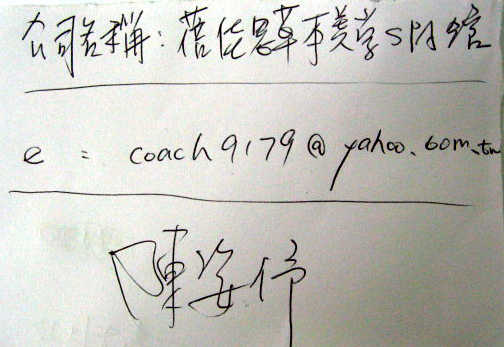 公司名稱：蓓佳思草本美学SPA館
e = coach9179@yahoo.com.tw
陳姿伃